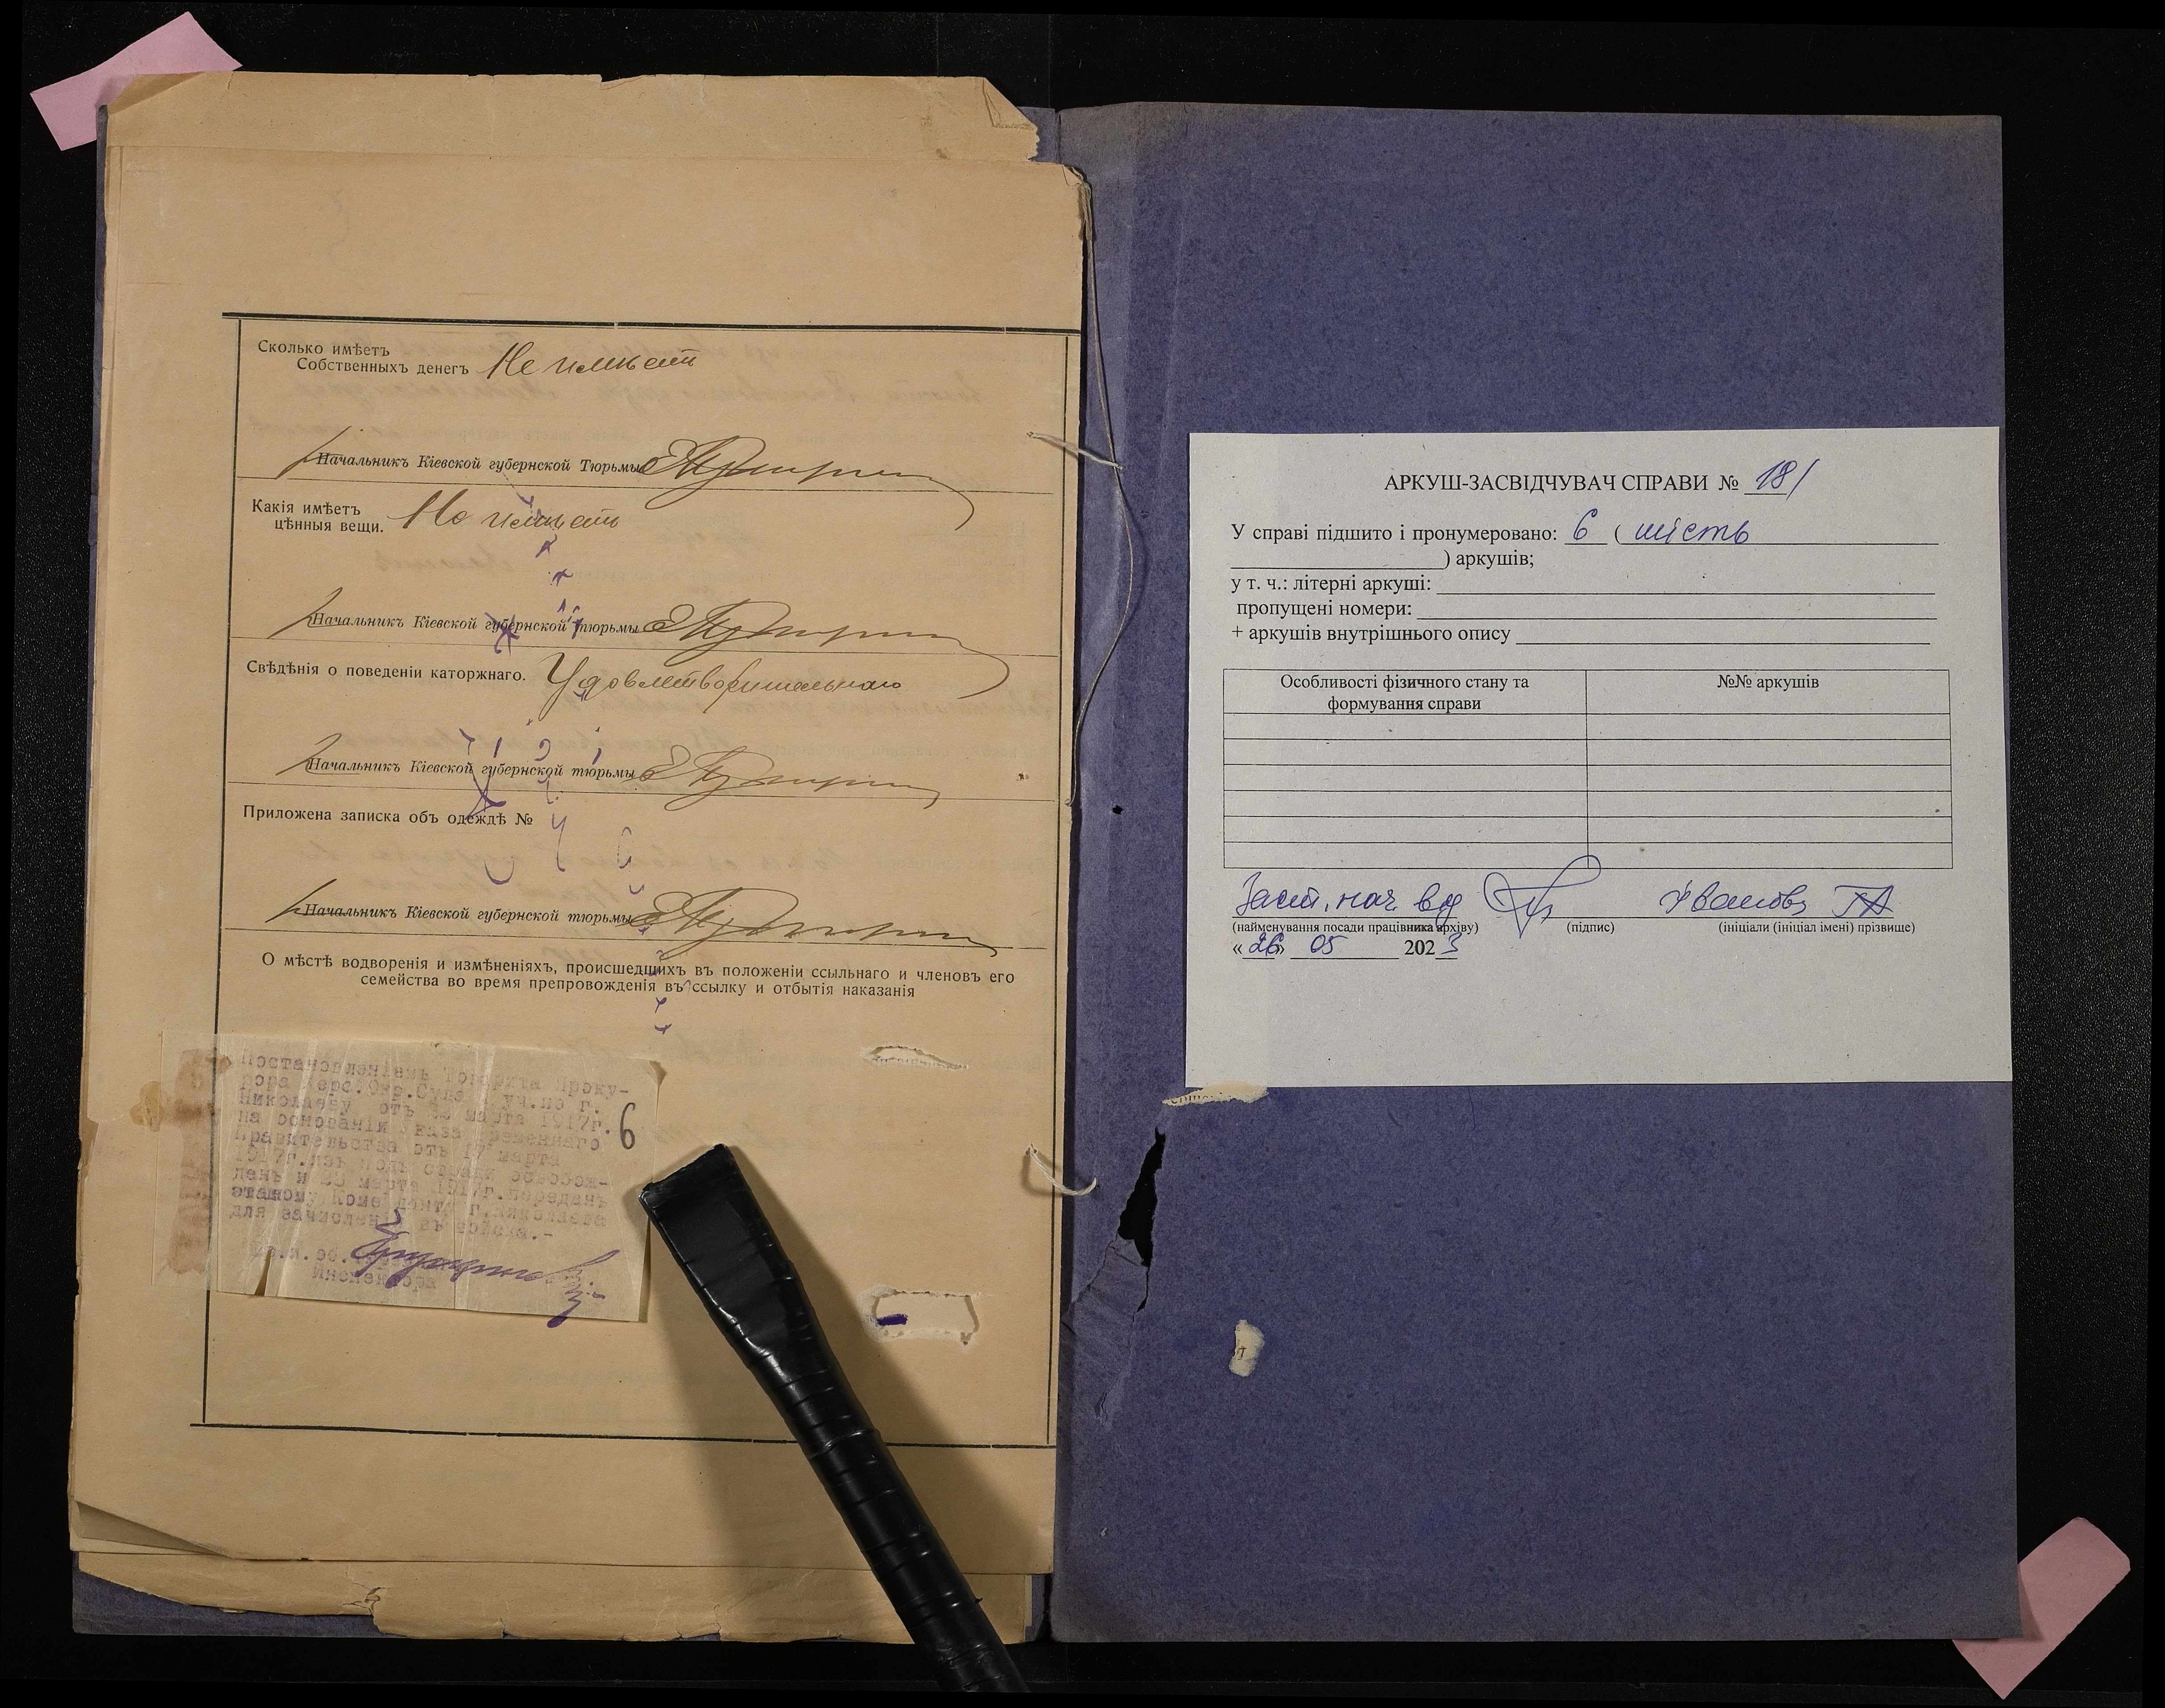 Сколько имѣетъ
Собственныхъ денегъ Не имѣетъ
Начальникъ Кіевской губернской Тюрьмы
Какія имѣетъ
цѣнныя вещи. Не имѣетъ
Начальникъ Кіевской губернской тюрьмы
Свѣдѣнія о поведеніи каторжнаго. Удовлетворительнаго
Начальникъ Кіевской губернской тюрьмы
Приложена записка объ одеждѣ №
Начальникъ Кіевской губернской тюрьмы
О мѣстѣ водворенія и измѣненіяхъ, происшедшихъ въ положеніи ссыльнаго и членовъ его
семейства во время препровожденія въ ссылку и отбытія наказанія
Постановленіемъ Товарища Проку-
рора Херс.Окр.Суда уч.по г.
Николаеву отъ марта 1917г.
на основаніи Указа Временнаго
Правительства отъ 17 марта
1917г. изъ подъ стражи освобож-
денъ и марта 1917г. переданъ
г.Николаева
для зачисленія въ войска.-
6
АРКУШ-ЗАСВІДЧУВАЧ СПРАВИ № 181
У справі підшито і пронумеровано: 6 ( шість
) аркушів;
у т. ч.: літерні аркуші:
пропущені номери:
+ аркушів внутрішнього опису
Особливості фізичного стану та
формування справи
№№ аркушів
Заст. нач. від Іванова
(найменування посади працівника архіву) (підпис) (ініціали (ініціал імені) прізвище)
« 26 » 05 2023